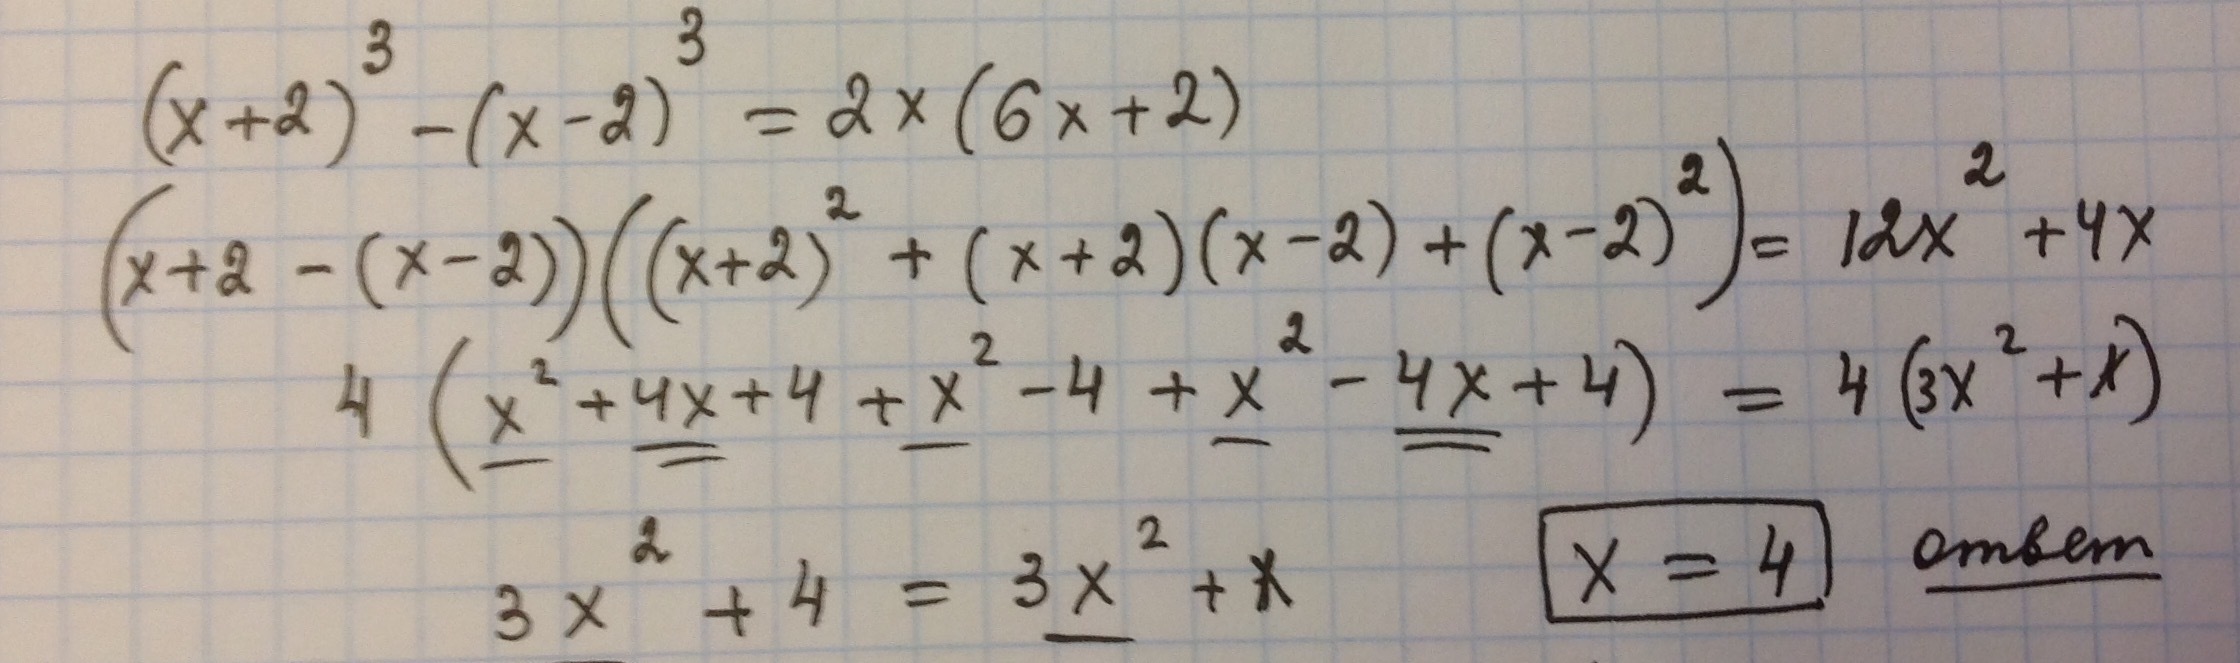 (x+2)³ - (x-2)³ = 2x(6x+2)
(x+2 - (x-2))((x+2)² + (x+2)(x-2) + (x-2)²) = 12x² + 4x
4(x² + 4x + 4 + x² - 4 + x² - 4x + 4) = 4(3x² + x)
3x² + 4 = 3x² + x
x = 4 ответ